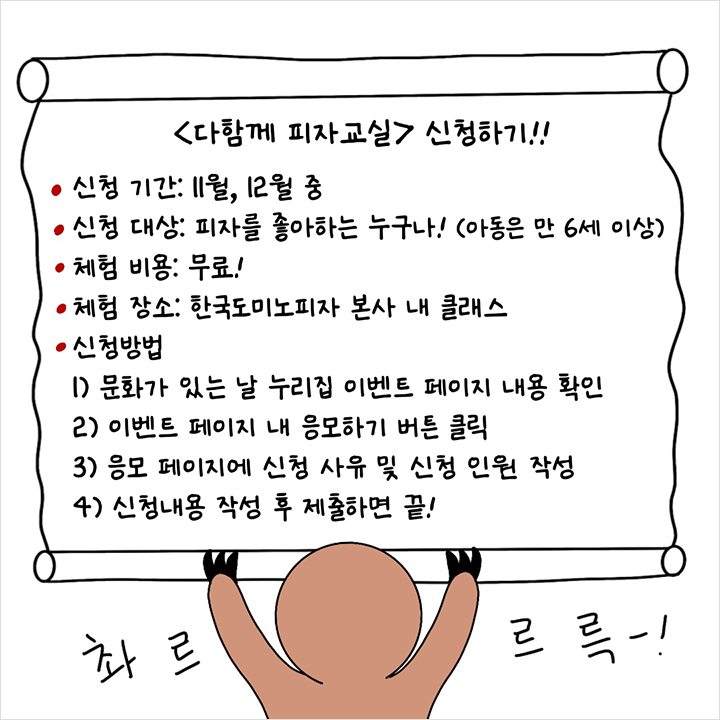 <다함께 피자교실> 신청하기!!
• 신청 기간: 11월, 12월 중
• 신청 대상: 피자를 좋아하는 누구나! (아동은 만 6세 이상)
• 체험 비용: 무료!
• 체험 장소: 한국도미노피자 본사 내 클래스
• 신청방법
1) 문화가 있는 날 누리집 이벤트 페이지 내용 확인
2) 이벤트 페이지 내 응모하기 버튼 클릭
3) 응모 페이지에 신청 사유 및 신청 인원 작성
4) 신청내용 작성 후 제출하면 끝!
촤 르 르 륵-!